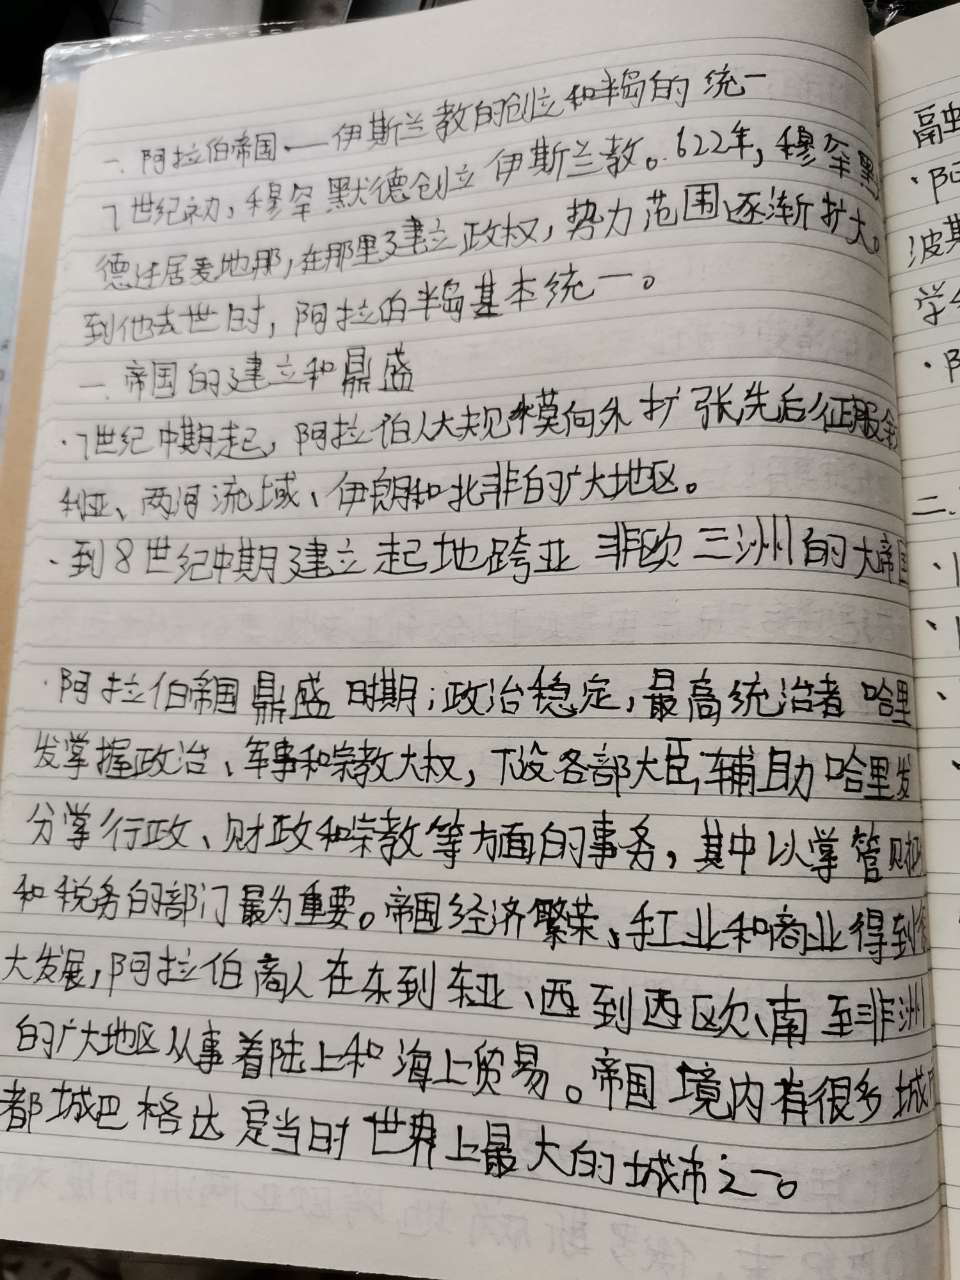 一、阿拉伯帝国——伊斯兰教的创立和半岛的统一
7世纪初，穆罕默德创立伊斯兰教。622年，穆罕默
德迁居麦地那，在那里建立政权，势力范围逐渐扩大。
到他去世时，阿拉伯半岛基本统一。
一、帝国的建立和鼎盛
·7世纪中期起，阿拉伯人大规模向外扩张先后征服叙
利亚、两河流域、伊朗和北非的广大地区。
·到8世纪中期建立起地跨亚非欧三洲的大帝国
·阿拉伯帝国鼎盛时期；政治稳定，最高统治者哈里
发掌握政治、军事和宗教大权，下设各部大臣，辅助哈里发
分掌行政、财政和宗教等方面的事务，其中以掌管财政
和税务的部门最为重要。帝国经济繁荣、手工业和商业得到
大发展，阿拉伯商人在东到东亚、西到西欧、南至非洲
的广大地区从事着陆上和海上贸易。帝国境内有很多城市
都城巴格达是当时世界上最大的城市之一。
融
·阿
波斯
学
二、